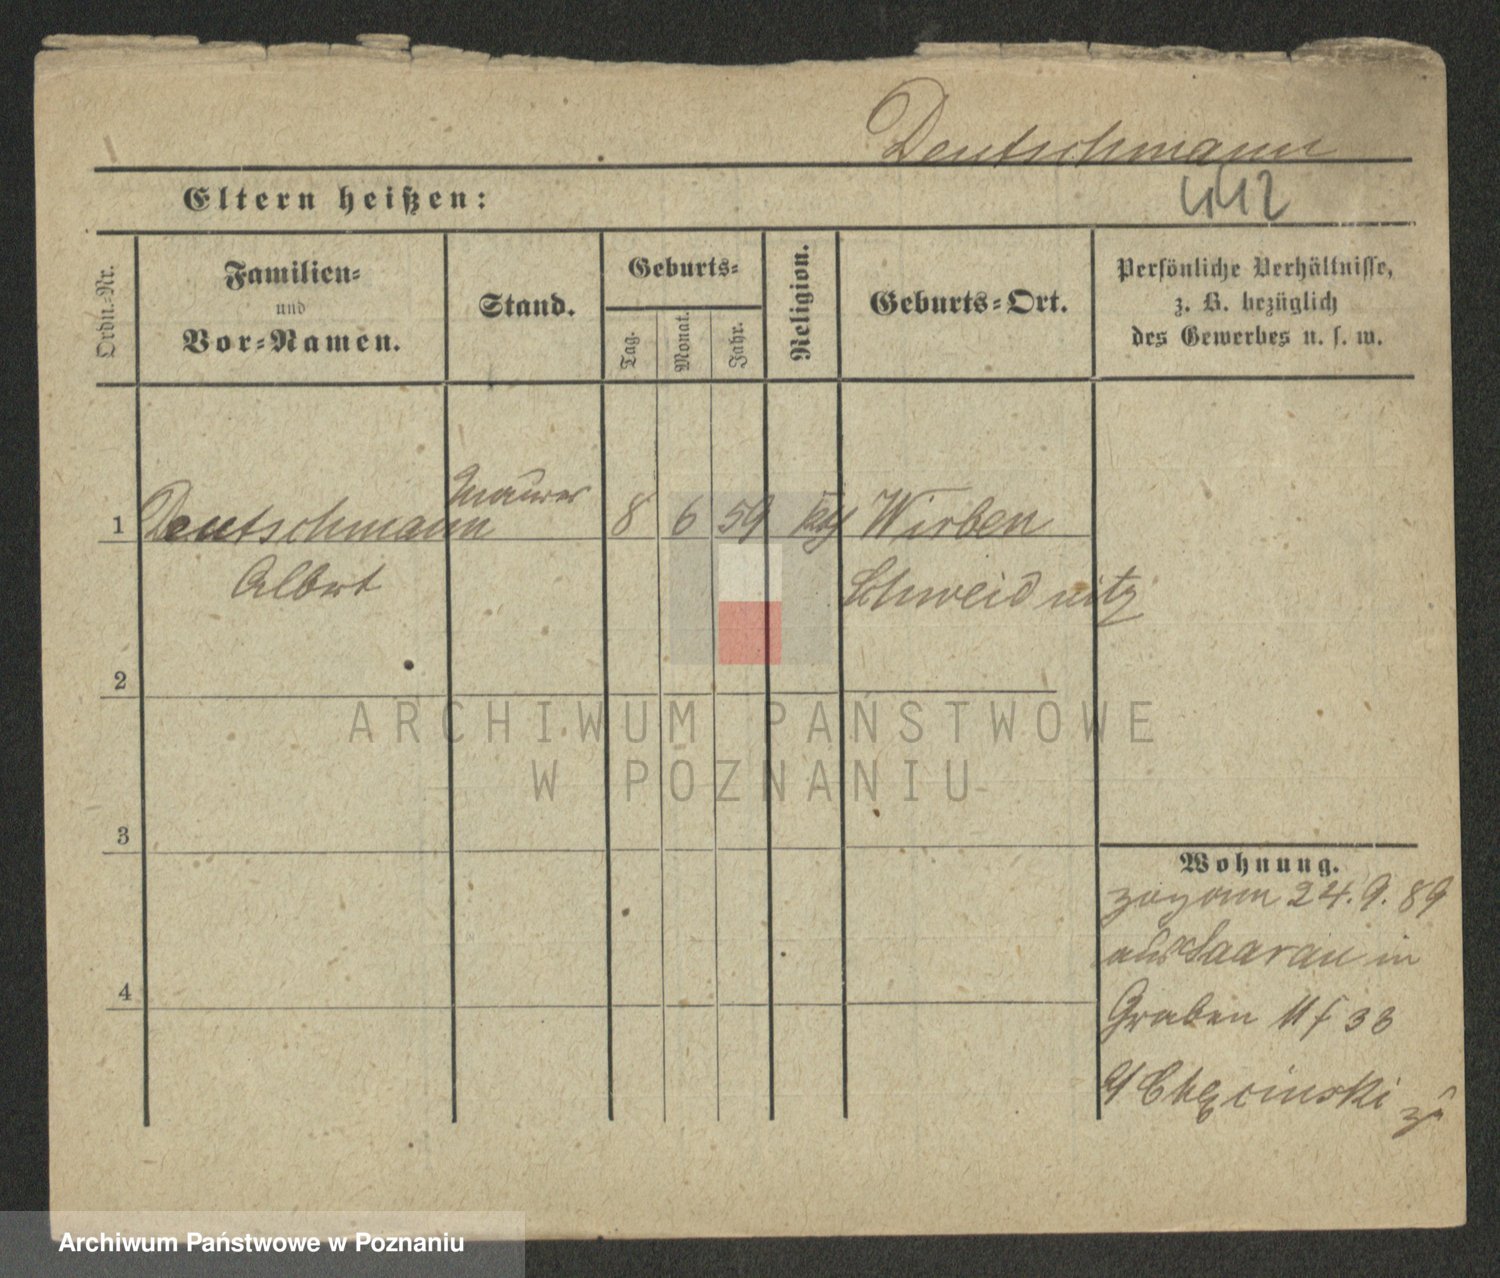 Deutschmann
412
Eltern heißen:
Ordn.-Nr.
Familien-
und
Vor-Namen.
Stand.
Geburts-
Tag.
Monat.
Jahr.
Religion.
Geburts-Ort.
Persönliche Verhältnisse,
z. B. bezüglich
des Gewerbes u. s. w.
1 Deutschmann Maurer 8 6 59 Wirben
Albert Schweidnitz
2
ARCHIWUM PAŃSTWOWE
W POZNANIU
3
4
Wohnung.
24.9.89
aus Saarau in
Graben 33
Archiwum Państwowe w Poznaniu